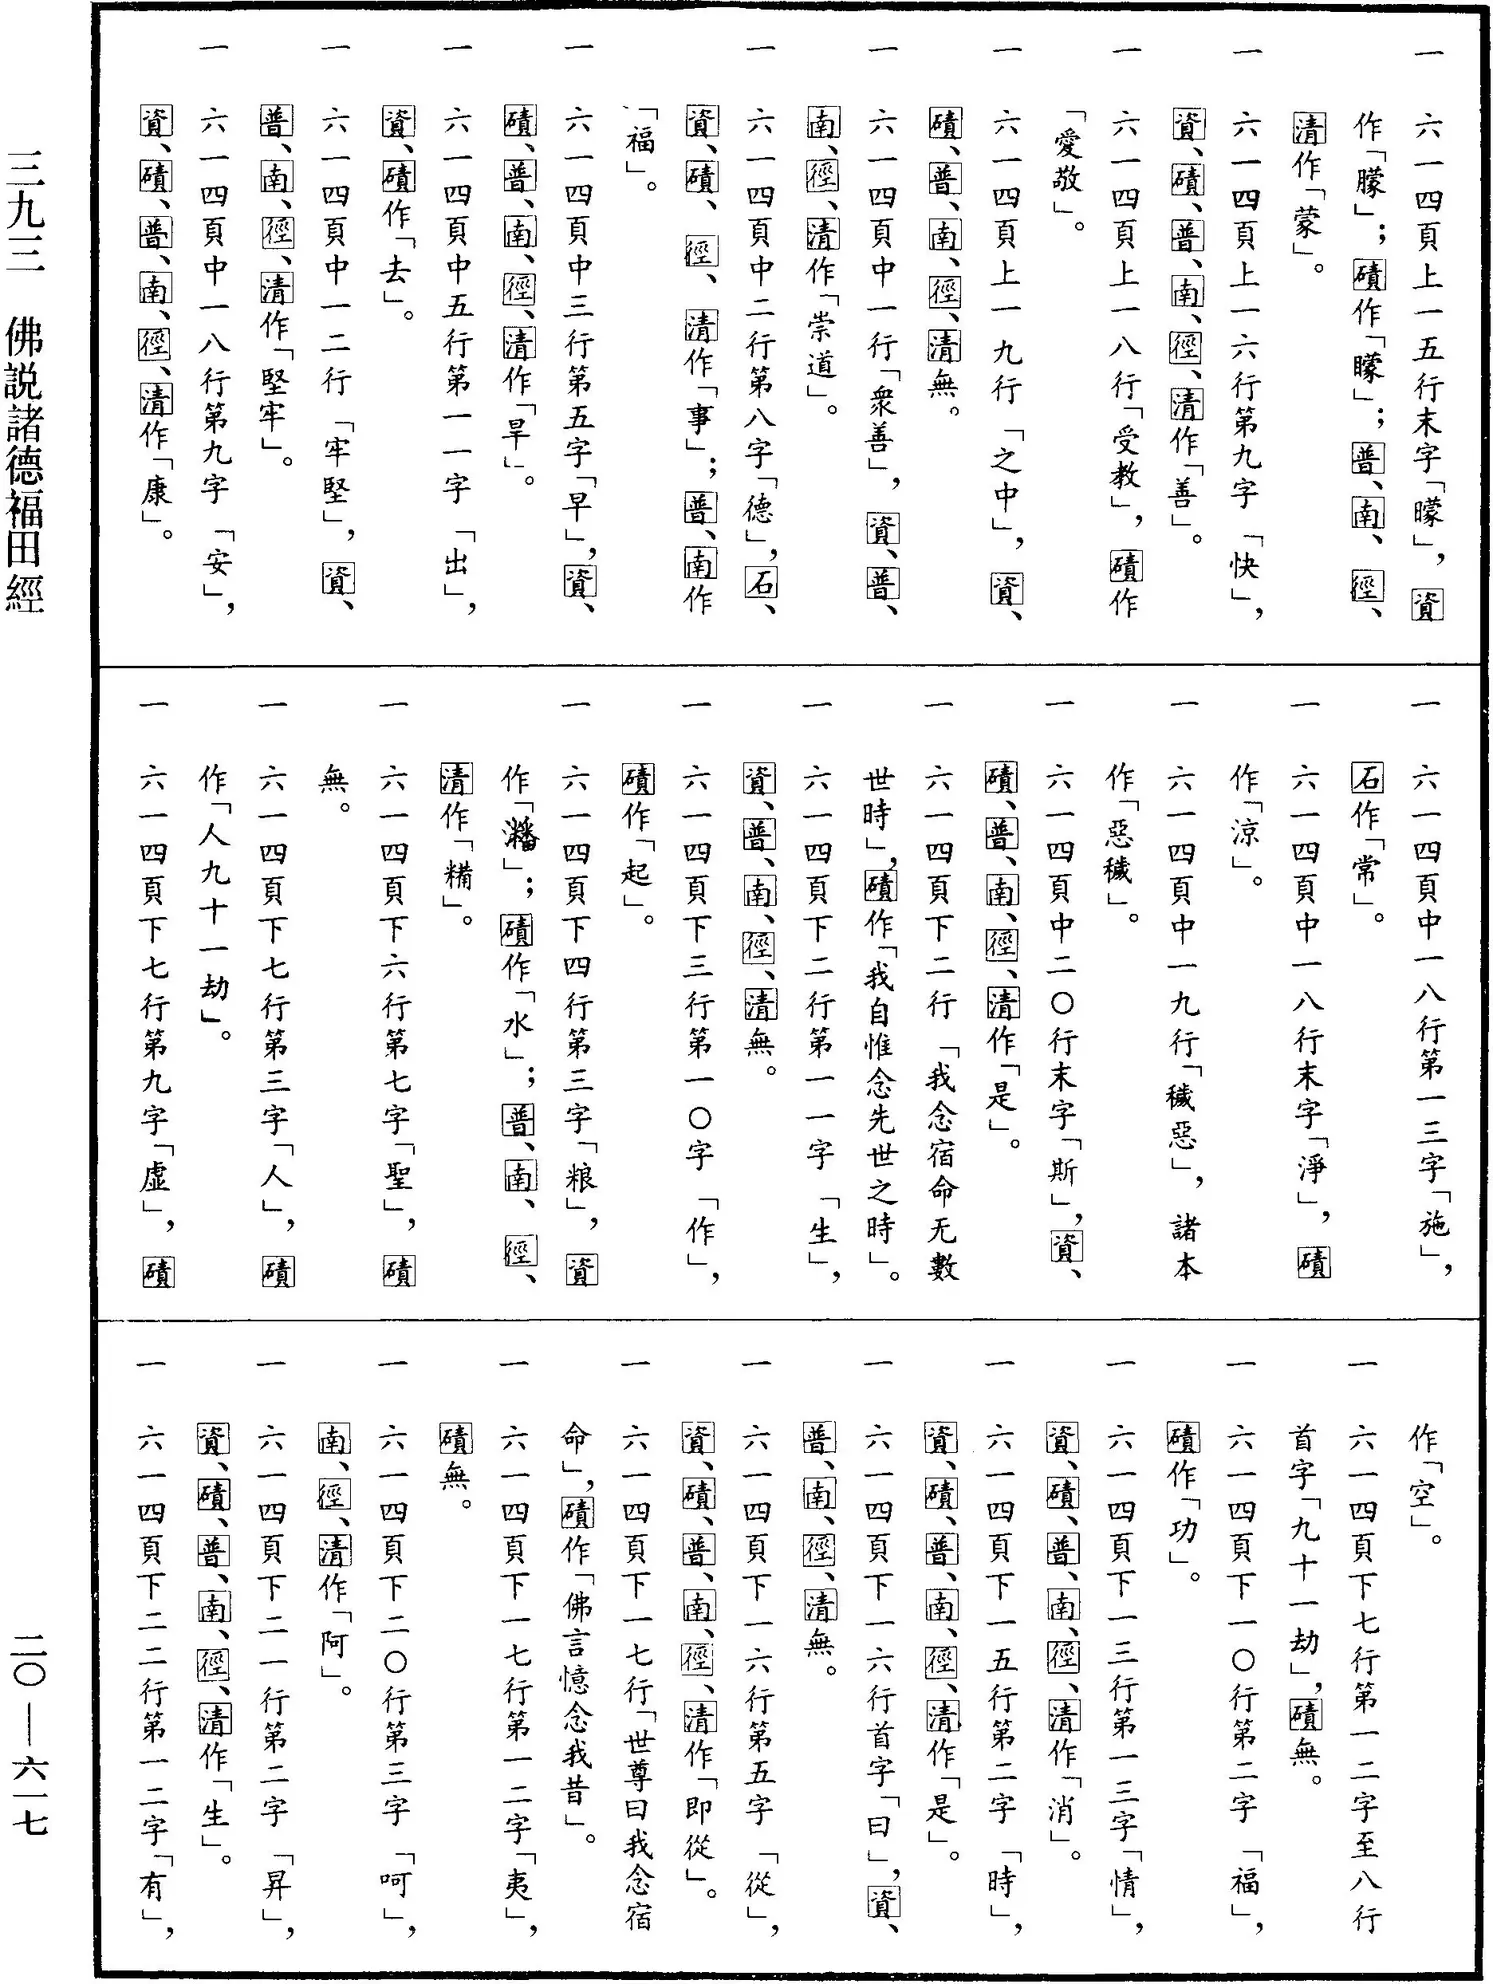 一　六一四頁上一五行末字「曚」，資
作「朦」；磧作「矇」；普、南、徑、
清作「蒙」。
一　六一四頁上一六行第九字「快」，
資、磧、普、南、徑、清作「善」。
一　六一四頁上一八行「受教」，磧作
「愛敬」。
一　六一四頁上一九行「之中」，資、
磧、普、南、徑、清無。
一　六一四頁中一行「衆善」，資、普、
南、徑、清作「崇道」。
一　六一四頁中二行第八字「德」，石、
資、磧、徑、清作「事」；普、南作
「福」。
一　六一四頁中三行第五字「早」，資、
磧、普、南、徑、清作「旱」。
一　六一四頁中五行第一一字「出」，
資、磧作「去」。
一　六一四頁中一二行「牢堅」，資、
普、南、徑、清作「堅牢」。
一　六一四頁中一八行第九字「安」，
資、磧、普、南、徑、清作「康」。
一　六一四頁中一八行第一三字「施」，
石作「常」。
一　六一四頁中一八行末字「淨」，磧
作「涼」。
一　六一四頁中一九行「穢惡」，諸本
作「惡穢」。
一　六一四頁中二〇行末字「斯」，資、
磧、普、南、徑、清作「是」。
一　六一四頁下二行「我念宿命无數
世時」，磧作「我自惟念先世之時」。
一　六一四頁下二行第一一字「生」，
資、普、南、徑、清無。
一　六一四頁下三行第一〇字「作」，
磧作「起」。
一　六一四頁下四行第三字「粮」，資
作「㶕」；磧作「水」；普、南、徑、
清作「糒」。
一　六一四頁下六行第七字「聖」，磧
無。
一　六一四頁下七行第三字「人」，磧
作「人九十一劫」。
一　六一四頁下七行第九字「虛」，磧
作「空」。
一　六一四頁下七行第一二字至八行
首字「九十一劫」，磧無。
一　六一四頁下一〇行第二字「福」，
磧作「功」。
一　六一四頁下一三行第一三字「情」，
資、磧、普、南、徑、清作「消」。
一　六一四頁下一五行第二字「時」，
資、磧、普、南、徑、清作「是」。
一　六一四頁下一六行首字「曰」，資、
普、南、徑、清無。
一　六一四頁下一六行第五字「從」，
資、磧、普、南、徑、清作「即從」。
一　六一四頁下一七行「世尊曰我念宿
命」，磧作「佛言憶念我昔」。
一　六一四頁下一七行第一二字「夷」，
磧無。
一　六一四頁下二〇行第三字「呵」，
南、徑、清作「阿」。
一　六一四頁下二一行第二字「昇」，
資、磧、普、南、徑、清作「生」。
一　六一四頁下二二行第一二字「有」，
三九三　佛説諸德福田經
二〇—六一七